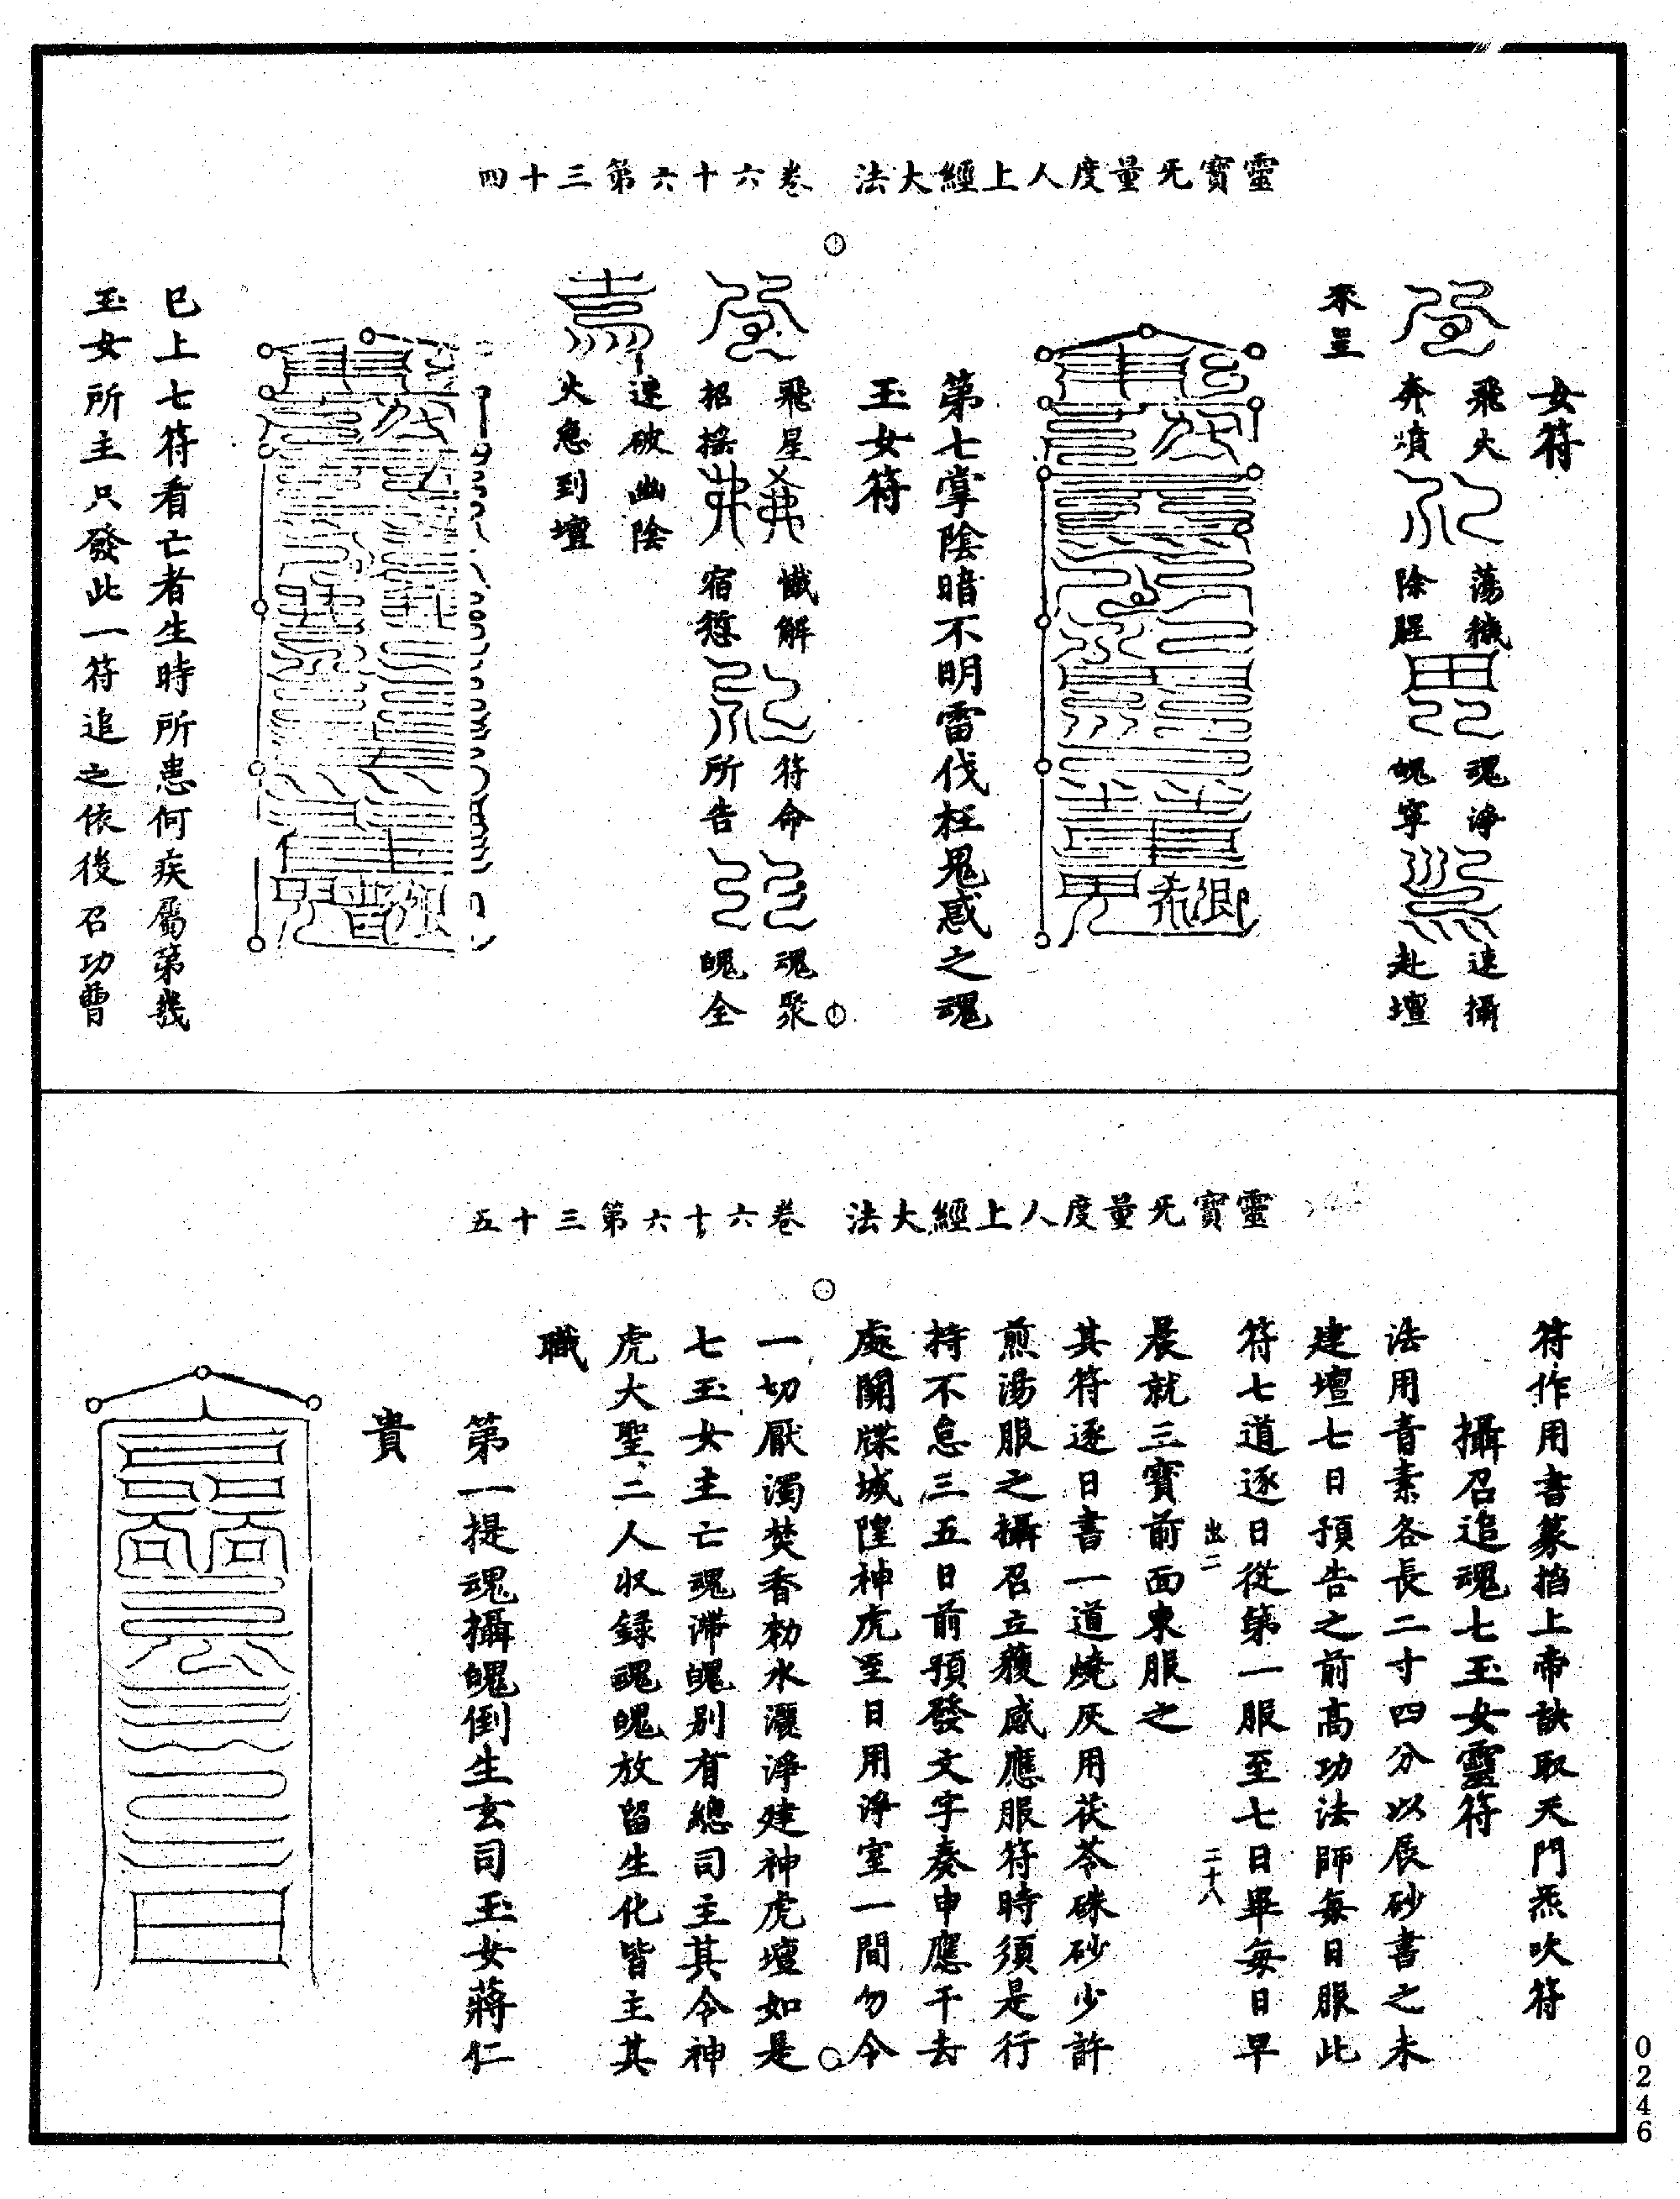 靈寶无量度人上經大法　卷六十六第三十四
女符
飛火　蕩穢　魂淨　速攝
奔煩　除腥　魄寧　赴壇
來呈
第七掌陰暗不明雷伐枉鬼惑之魂
玉女符
飛星　懺解　符命　魂聚
招搖　宿愆　所告　魄全
速破幽陰
火急到壇
已上七符看亡者生時所患何疾屬第幾
玉女所主只發此一符追之依後召功曹
靈寶无量度人上經大法　卷六十六第三十五
符作用書篆掐上帝訣取天門炁吹符
攝召追魂七玉女靈符
法用青素各長二寸四分以辰砂書之未
建壇七日預告之前高功法師每日服此
符七道逐日從第一服至七日畢每日早
出二　二十八
晨就三寶前面東服之
其符逐日書一道燒灰用茯苓硃砂少許
煎湯服之攝召立獲感應服符時須是行
持不怠三五日前預發文字奏申應干去
處關牒城隍神虎至日用淨室一間勿令
一切厭濁焚香勑水灑淨建神虎壇如是
七玉女主亡魂滯魄別有總司主其令神
虎大聖二人收録魂魄放留生化皆主其
職
第一提魂攝魄倒生玄司玉女蔣仁
貴
0246